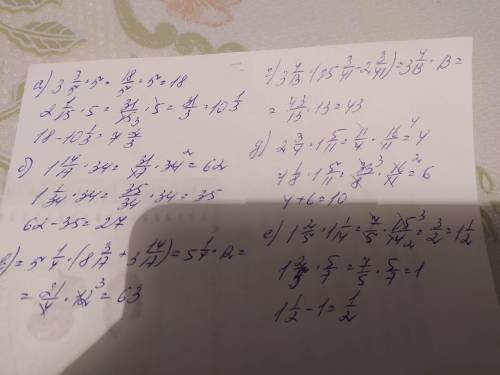 а) 3 3/5 · 5 = 18/5 · 5 = 18
2 1/15 · 5 = 31/15 · 5 = 31/3 = 10 1/3
18 - 10 1/3 = 7 2/3
б) 1 14/17 · 34 = 31/17 · 34 = 62
1 1/34 · 34 = 35/34 · 34 = 35
62 - 35 = 27
в) = 5 1/4 · (8 3/17 + 3 14/17) = 5 1/4 · 12 =
= 21/4 · 12 = 63
3 4/13 · (15 3/41 - 2 3/41) = 3 4/13 · 13 =
= 43/13 · 13 = 43
д) 2 3/4 · 1 5/11 = 11/4 · 16/11 = 4
4 1/8 · 1 5/11 = 33/8 · 16/11 = 6
4 + 6 = 10
е) 1 2/5 · 1 1/14 = 7/5 · 15/14 = 3/2 = 1 1/2
1 2/5 · 5/7 = 7/5 · 5/7 = 1
1 1/2 - 1 = 1/2